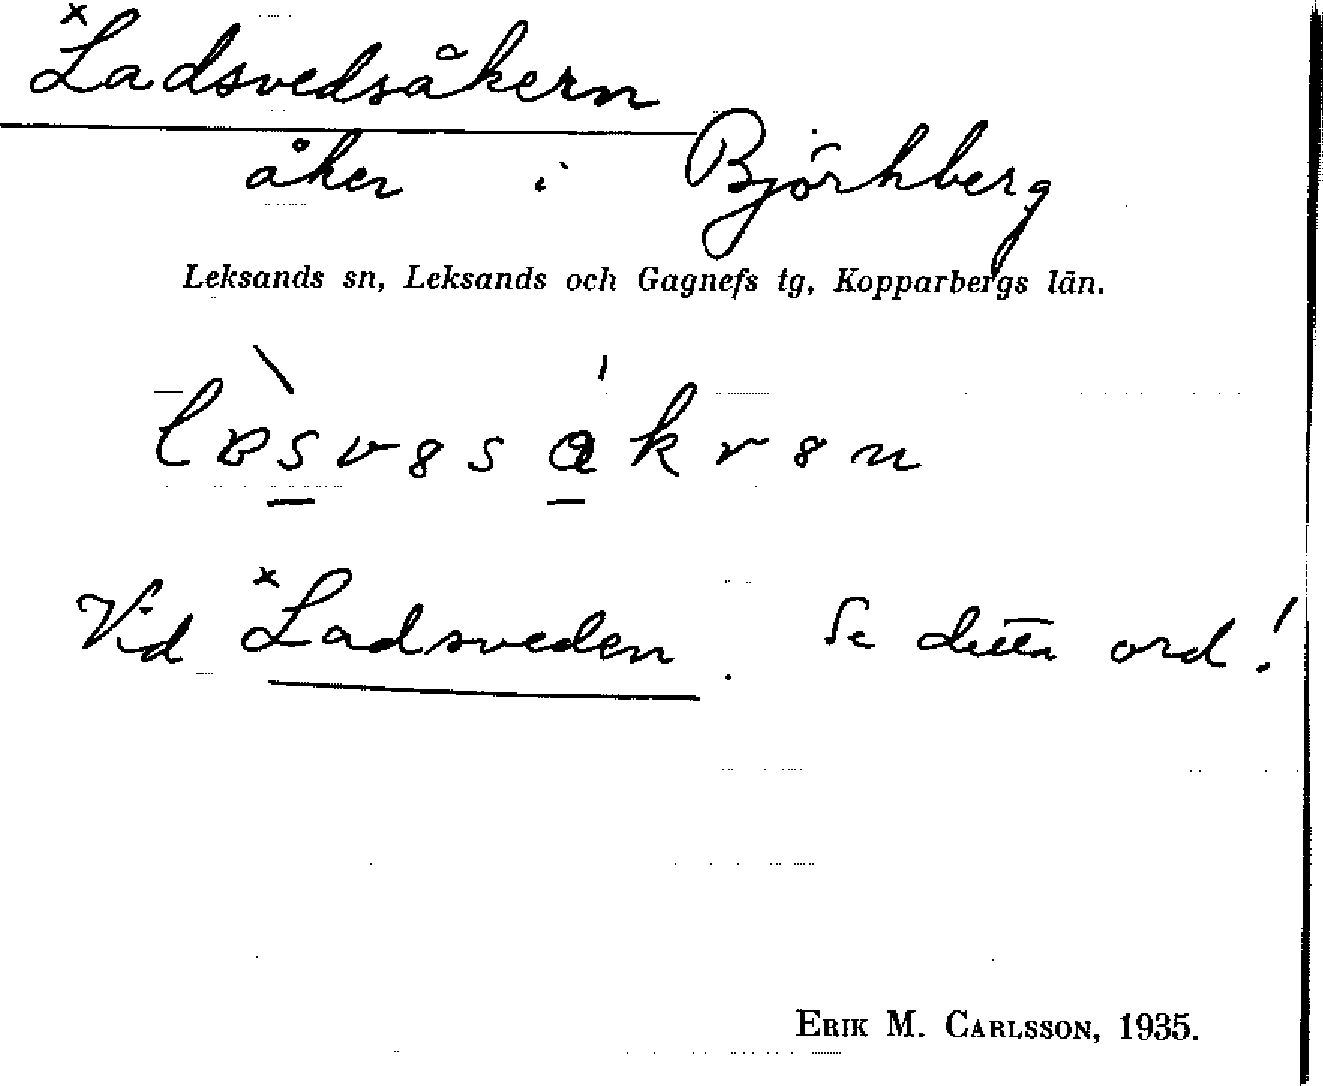 ×Ladsvedsåkern
åker i Björkberg
Leksands sn, Leksands och Gagnefs tg, Kopparbergs län.
Vid ×Ladsveden. Se detta ord!
ERIK M. CARLSSON, 1935.